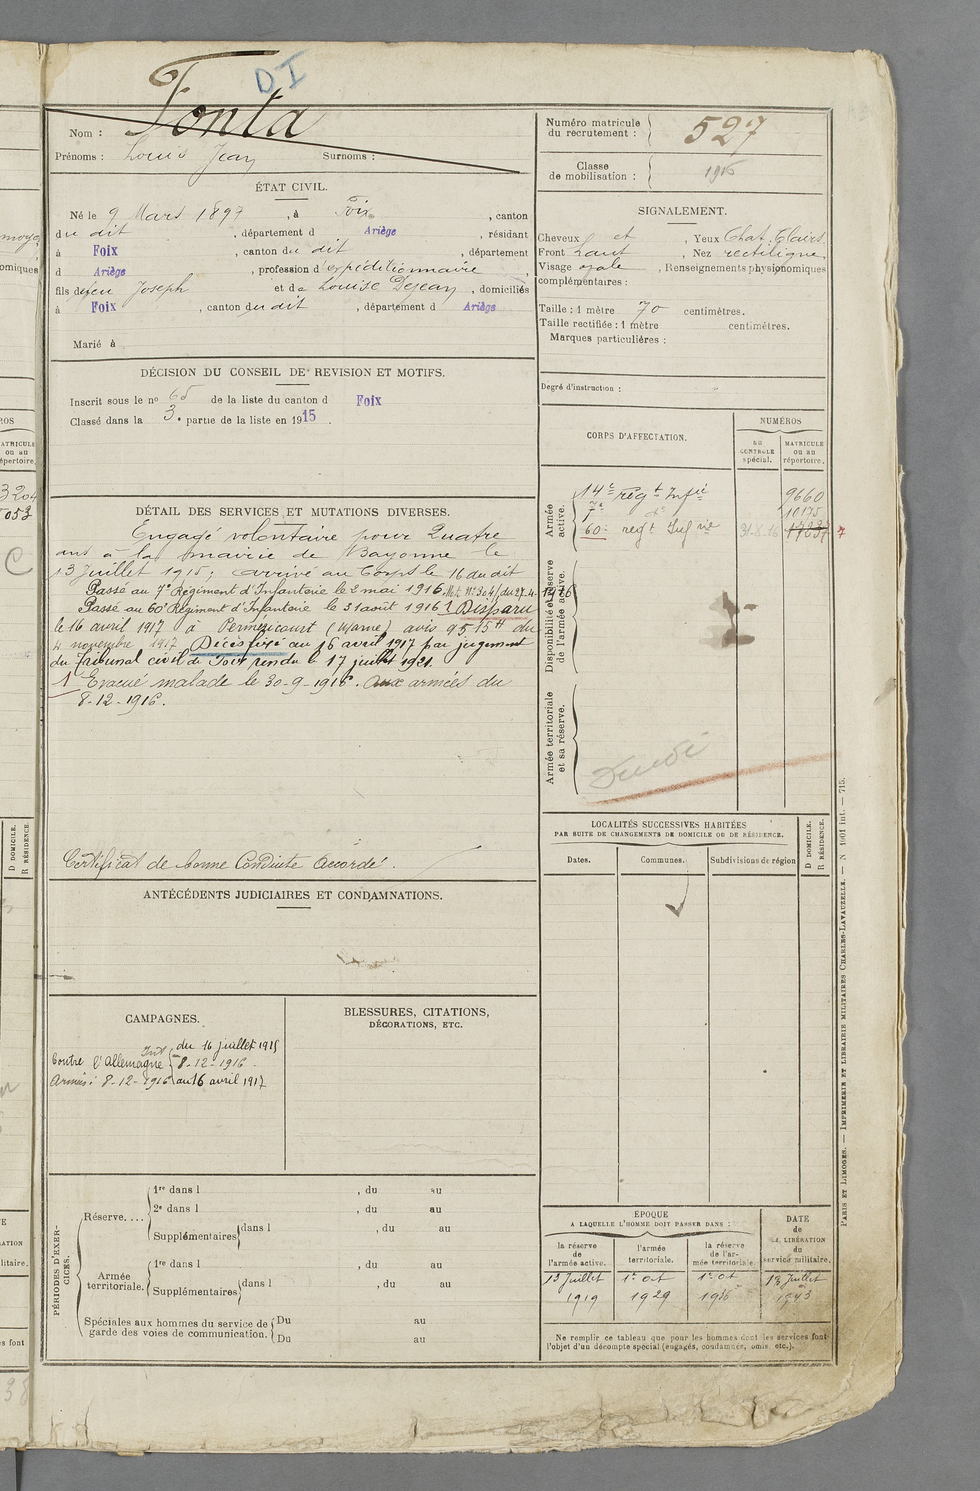 DI
Nom : Fonta
Prénoms : Louis Jean Surnoms :
ÉTAT CIVIL.
Né le 9 Mars 1897, à Foix, canton
du dit, département d Ariège, résidant
à Foix, canton du dit, département
d Ariège, profession d'expéditionnaire,
fils de feu Joseph et de Louise Dejean, domiciliés
à Foix, canton du dit, département d Ariège
Marié à
DÉCISION DU CONSEIL DE REVISION ET MOTIFS.
Inscrit sous le nº 65 de la liste du canton d Foix
Classé dans la 3e partie de la liste en 1915.
DÉTAIL DES SERVICES ET MUTATIONS DIVERSES.
Engagé volontaire pour Quatre
ans à la mairie de Bayonne le
13 Juillet 1915; arrivé au Corps le 16 du dit
Passé au 7e Régiment d'Infanterie le 2 mai 1916. Nº 304 du 27.4.1916
Passé au 60e Régiment d'Infanterie le 31 août 1916 1 Disparu
le 16 avril 1917 à Perméricourt (Marne) avis 95-15 H du
4 novembre 1917 Décès fixé au 16 avril 1917 par jugement
du Tribunal civil de Foix rendu le 17 juillet 1921.
1 Evacué malade le 30-9-1916. aux armées du
8-12-1916.
Certificat de bonne Conduite Accordé.
ANTÉCÉDENTS JUDICIAIRES ET CONDAMNATIONS.
CAMPAGNES.
Contre l'Allemagne Int du 16 juillet 1915
8-12-1916
Armées : 8-12-1916 au 16 avril 1917
BLESSURES, CITATIONS,
DÉCORATIONS, ETC.
PÉRIODES D'EXERCICES.
Réserve....
1re dans l , du au
2e dans l , du au
Supplémentaires dans l , du au
Armée
territoriale.
1re dans l , du au
Supplémentaires dans l , du au
Spéciales aux hommes du service de
garde des voies de communication.
Du au
Du au
Numéro matricule
du recrutement : 527
Classe
de mobilisation : 1915
SIGNALEMENT.
Cheveux et, Yeux Chat. Clairs
Front haut, Nez rectiligne
Visage ovale, Renseignements physionomiques
complémentaires :
Taille : 1 mètre 70 centimètres.
Taille rectifiée : 1 mètre centimètres.
Marques particulières :
Degré d'instruction :
CORPS D'AFFECTATION.
NUMÉROS
AU CONTROLE spécial.
MATRICULE ou au répertoire.
Armée active.
14e régt Infie 9660
7e do 10175
60e regt Infrie 31-8-16
Disponibilité et réserve de l'armée active.
Armée territoriale et sa réserve.
LOCALITÉS SUCCESSIVES HABITÉES
PAR SUITE DE CHANGEMENTS DE DOMICILE OU DE RÉSIDENCE.
Dates. Communes. Subdivisions de région
D DOMICILE.
R RÉSIDENCE.
ÉPOQUE
A LAQUELLE L'HOMME DOIT PASSER DANS :
la réserve de l'armée active.
l'armée territoriale.
la réserve de l'armée territoriale.
DATE de LA LIBÉRATION du service militaire.
13 Juillet 1919
1er Oct 1929
1er Oct
13 Juillet
Ne remplir ce tableau que pour les hommes dont les services font
l'objet d'un décompte spécial (engagés, condamnés, omis, etc.).
PARIS ET LIMOGES. — IMPRIMERIE ET LIBRAIRIE MILITAIRES CHARLES-LAVAUZELLE. — N 1901 int. — 715.